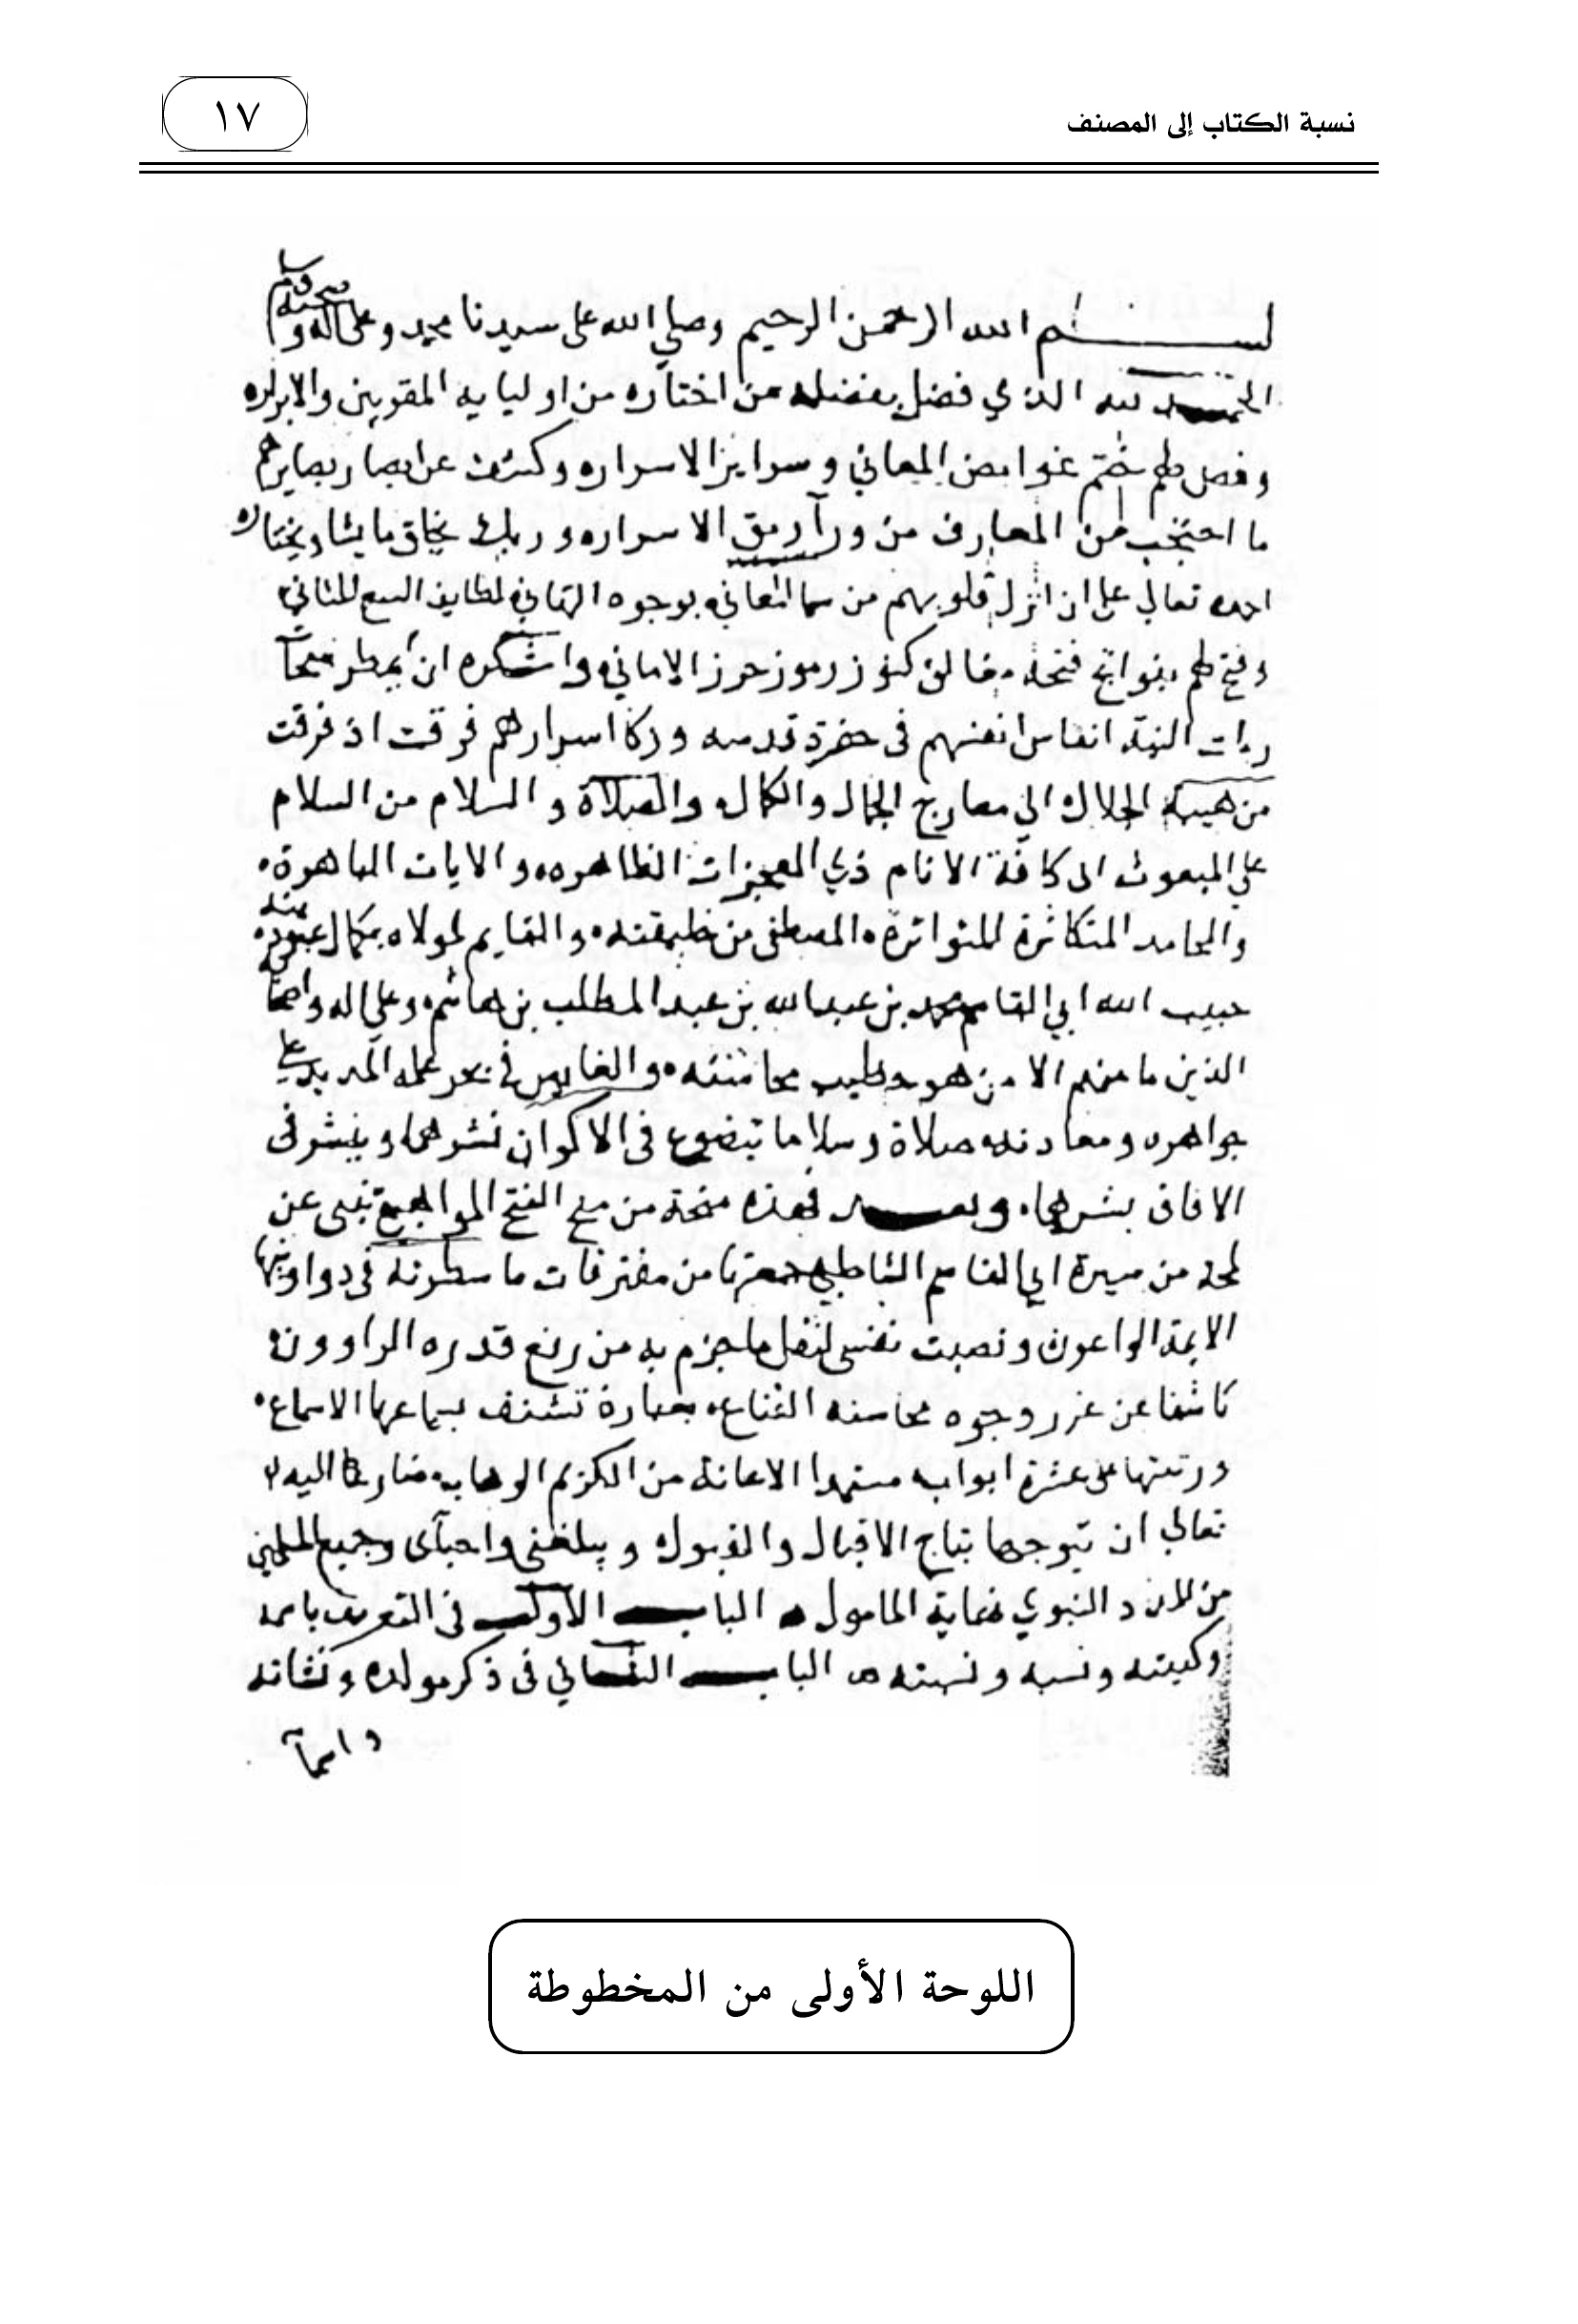 نسبة الكتاب إلى المصنف
١٧
بسم الله الرحمن الرحيم وصلي الله على سيدنا محمد وعلى اله وصحبه وسلم
الحمد لله الذي فضل بفضله من اختاره من اوليايه المقربين والابرار
وفصل لهم ختم غوامض المعاني وسراير الاسرار وكشف عن ابصار بصايرهم
ما احتجب من المعارف من ورآ رمق الاسرار وربك يخلق ما يشا ويختار
احمده تعالي علي ان انزل قلوبهم من سما المعاني بوجوه التهاني لطايف السبع المثاني
وفتح لهم بفواتح فتحه كنوز رموز حرز الاماني واشكره ان
انفاس انفسهم في حضرة قدسه اسرارهم فرقت اذ فرقت
من هيبة الجلال الي معارج الجمال والكمال والصلاة والسلام من السلام
علي المبعوث الى كافة الانام ذي المعجزات الظاهره والايات الباهرة
والمحامد المتكاثرة المتواترة المصطفى من خليقته والقايم لمولاه بكمال عبوديته
حبيب الله ابي القاسم محمد بن عبدالله بن عبد المطلب بن هاشم وعلي اله واصحابه
الذين ما منهم الا من هو خطيب محاسنه والغايص في بحر علمه المديد علي
جواهره ومعادنه صلاة وسلاما تيضوع في الاكوان نشرهما وينشر في
الافاق بشرهما وبعد فهذه منحة من منح الفتح المواهبي تنبى عن
لمحة من سيرة ابي القاسم الشاطبي جمعتها من مفترقات ما سطرته في دواوينها
الايمة الواعون ونصبت نفسي لنقل ما جزم به من رفع قدره الراوون
كاشفا عن غرر وجوه محاسنه القناع بعبارة تشنف بسماعها الاسماع
ورتبتها على عشرة ابواب مستمدا الاعانة من الكريم الوهاب ضارعا اليه
تعالي ان يتوجها بتاج الاقبال والقبول ويبلغني واحبآى وجميع المسلمين
من المدد النبوي نهاية المامول الباب الاول في التعريف باسمه
وكنيته ونسبه ونسبته الباب الثاني في ذكر مولده ونشاته
واسمآ
اللوحة الأولى من المخطوطة